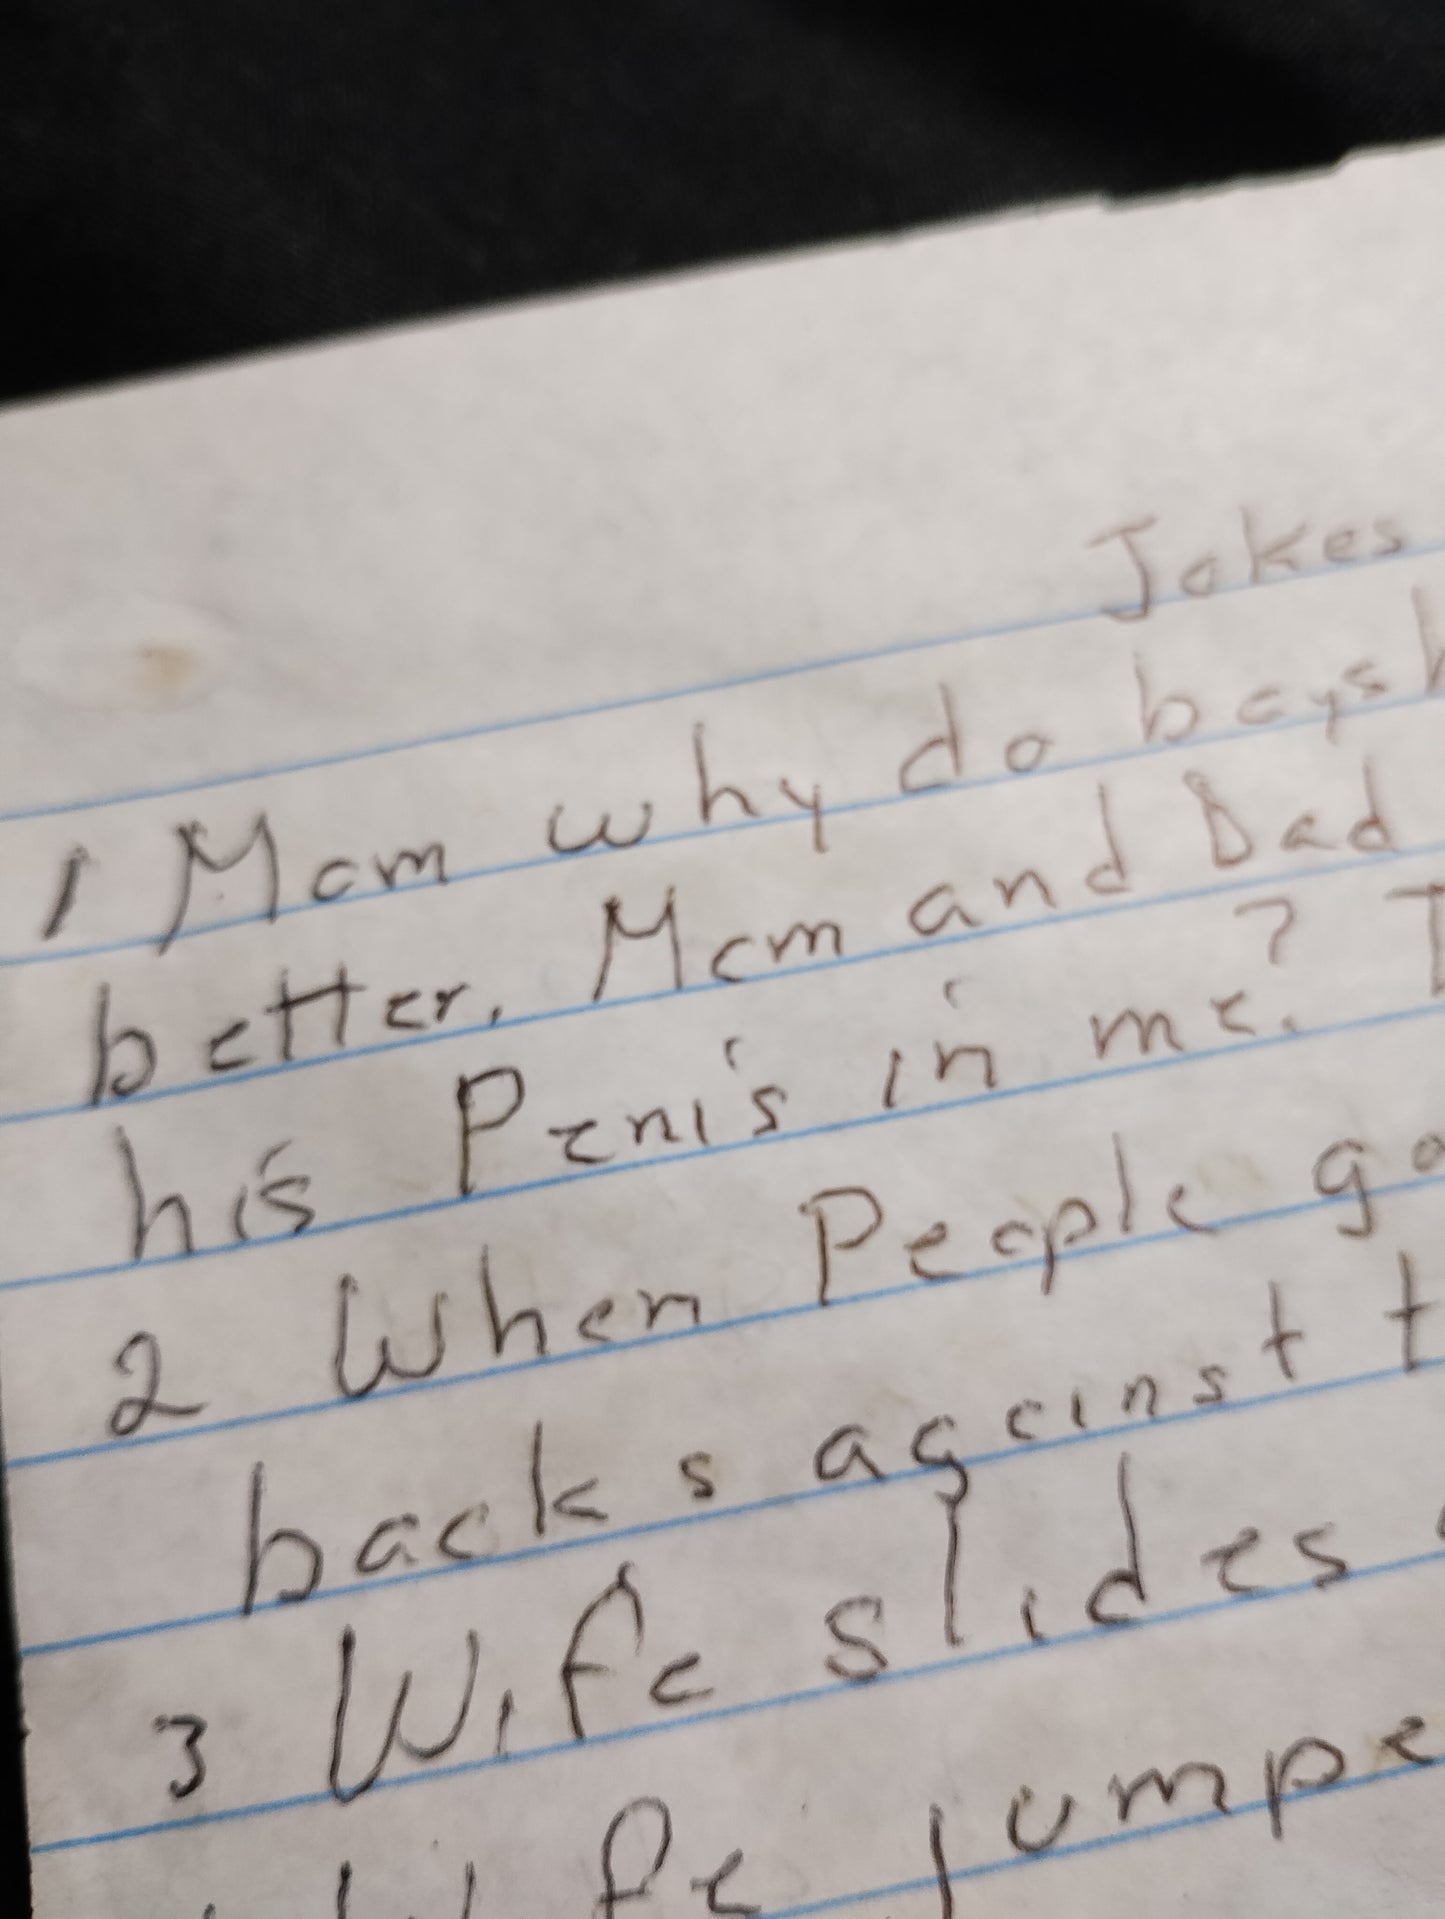 Jokes
1 Mom why do boys h
better. Mom and Dad
his Penis in me. ?
2 When People go
backs against t
3 Wife slides
Wife jumpe